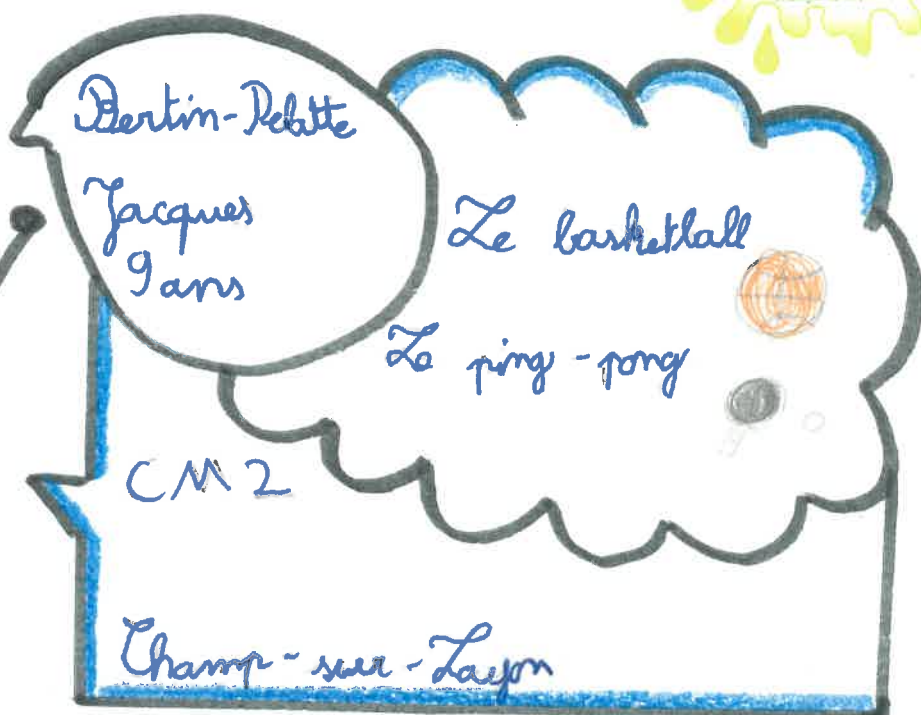 Bertin-Delatte
Jacques
9 ans
Le basketball
Le ping-pong
CM2
Champ-sur-Layon